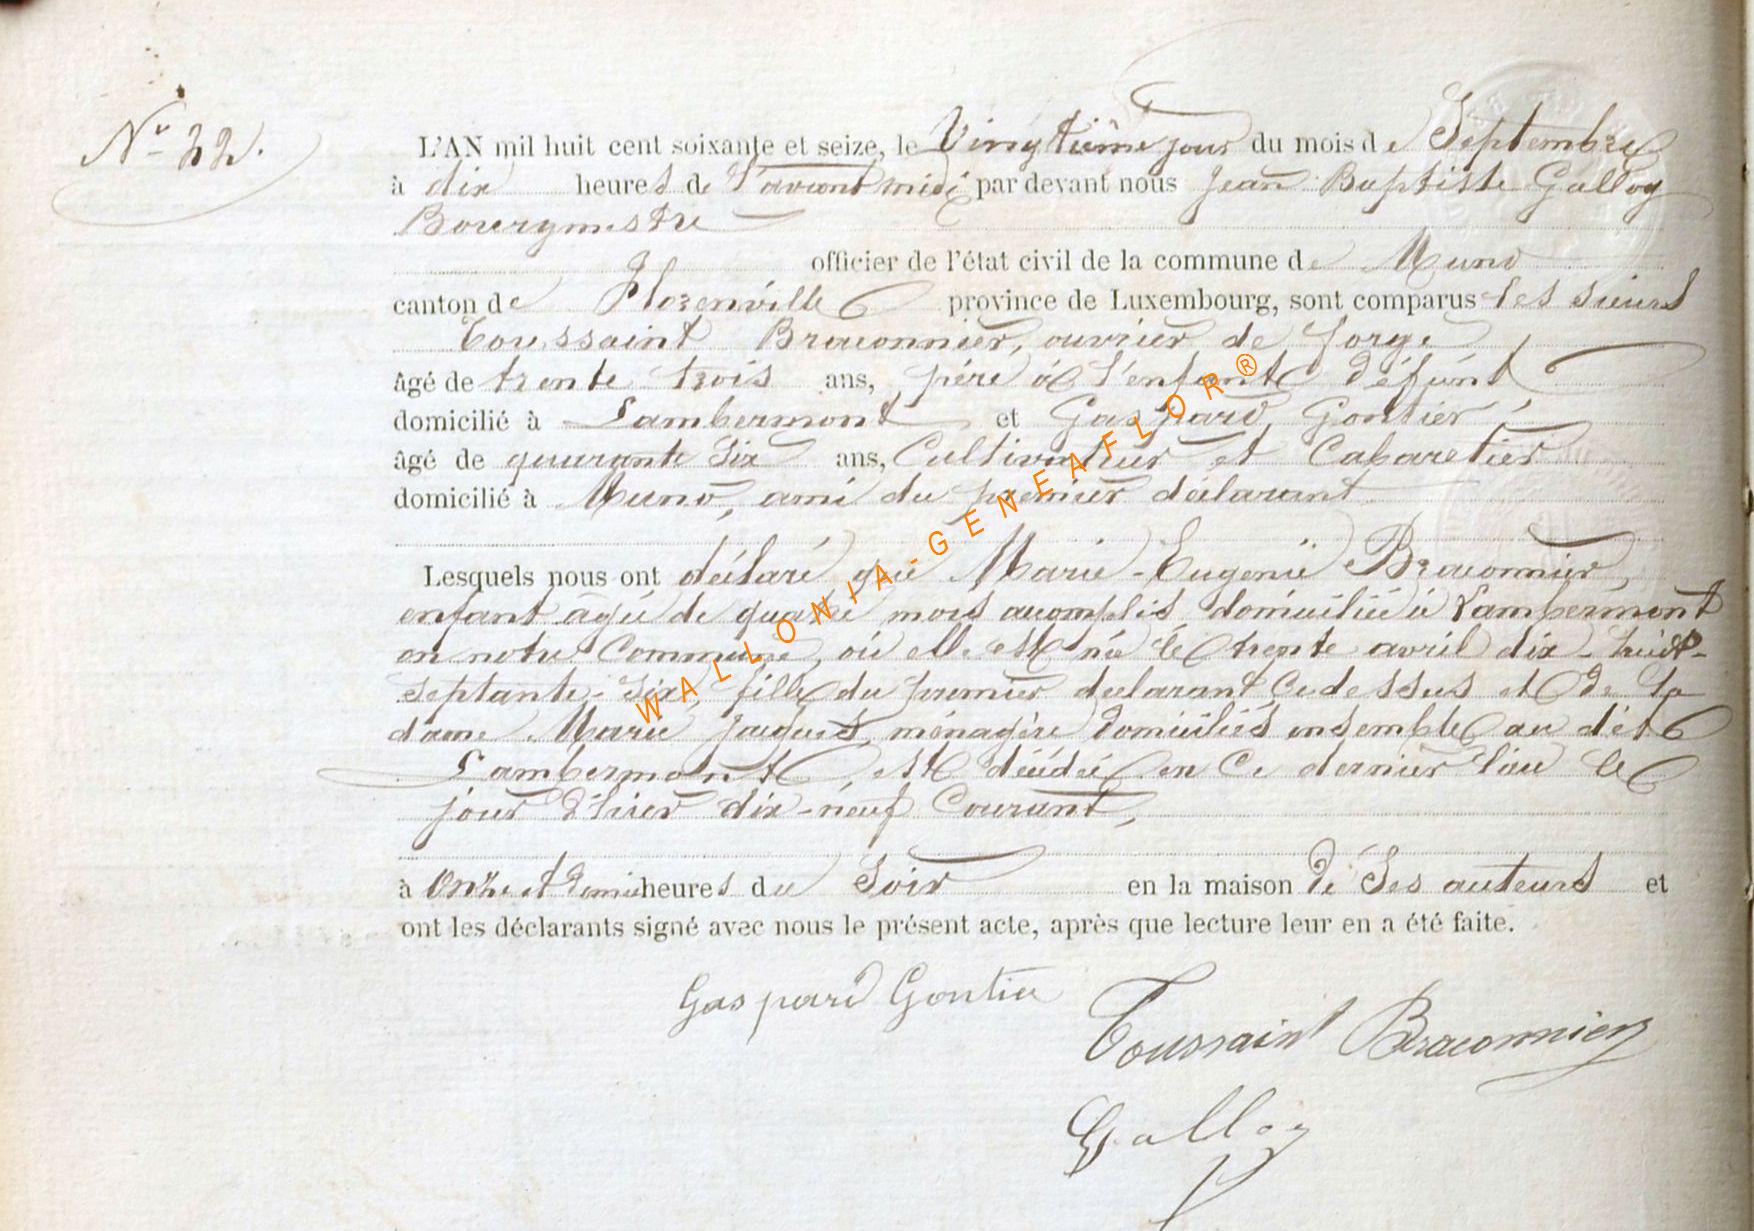 Nº 22.
L'AN mil huit cent soixante et seize, le Vingtième jour du mois de Septembre
à dix heures de l'avant midi par devant nous Jean Baptiste Galloy
Bourgmestre
officier de l'état civil de la commune de Muno
canton de Florenville province de Luxembourg, sont comparus les sieurs
Toussaint Braconnier, ouvrier de forge
âgé de trente trois ans, père à l'enfant défunt
domicilié à Lambermont et Gaspard Gontier,
âgé de quarante six ans, Cultivateur et Cabaretier
domicilié à Muno, ami du premier déclarant
Lesquels nous ont déclaré que Marie-Eugenie Braconnier,
enfant âgée de quatre mois accomplis domiciliée à Lambermont
en notre Commune, où elle est née le trente avril dix-huit-
septante-six, fille du premier déclarant ci dessus et de la
dame Marie Jacques, ménagère domiciliés ensemble au dit
Lambermont, est décédée en ce dernier lieu le
jour d'hier dix-neuf Courant,
à Onze et demie heures du Soir en la maison de Ses auteurs et
ont les déclarants signé avec nous le présent acte, après que lecture leur en a été faite.
Gaspard Gontier
Toussaint Braconnier
Galloy
WALLONIA-GENEAFLOR®